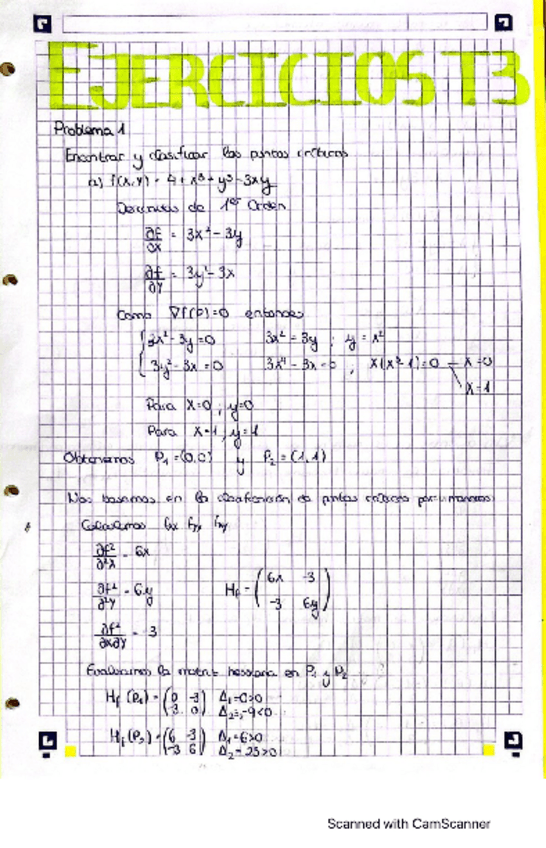 EJERCICIOS T3
Problema 1
Encontrar y clasificar los puntos críticos
a) f(x,y) = 4+x³+y³-3xy
Derivadas de 1er Orden
∂f/∂x = 3x²-3y
∂f/∂y = 3y²-3x
Como ∇f(P)=0 entonces
3x²-3y=0 3x²=3y ; y=x²
3y²-3x=0 3x⁴-3x=0 , x(x³-1)=0 x=0
x=1
Para x=0 ; y=0
Para x=1 ; y=1
Obtenemos P₁=(0,0) y P₂=(1,1)
Nos basamos en la clasificación de puntos críticos por
Calculamos fxx fyy fxy
∂f²/∂²x = 6x
∂f²/∂²y = 6y Hf = (6x -3
-3 6y)
∂f²/∂x∂y = -3
Evaluamos la matriz hessiana en P₁ y P₂
Hf(P₁) = (0 -3 Δ₁=0>0
-3 0) Δ₂=-9<0
Hf(P₂) = (6 -3 Δ₁=6>0
-3 6) Δ₂=25>0
Scanned with CamScanner